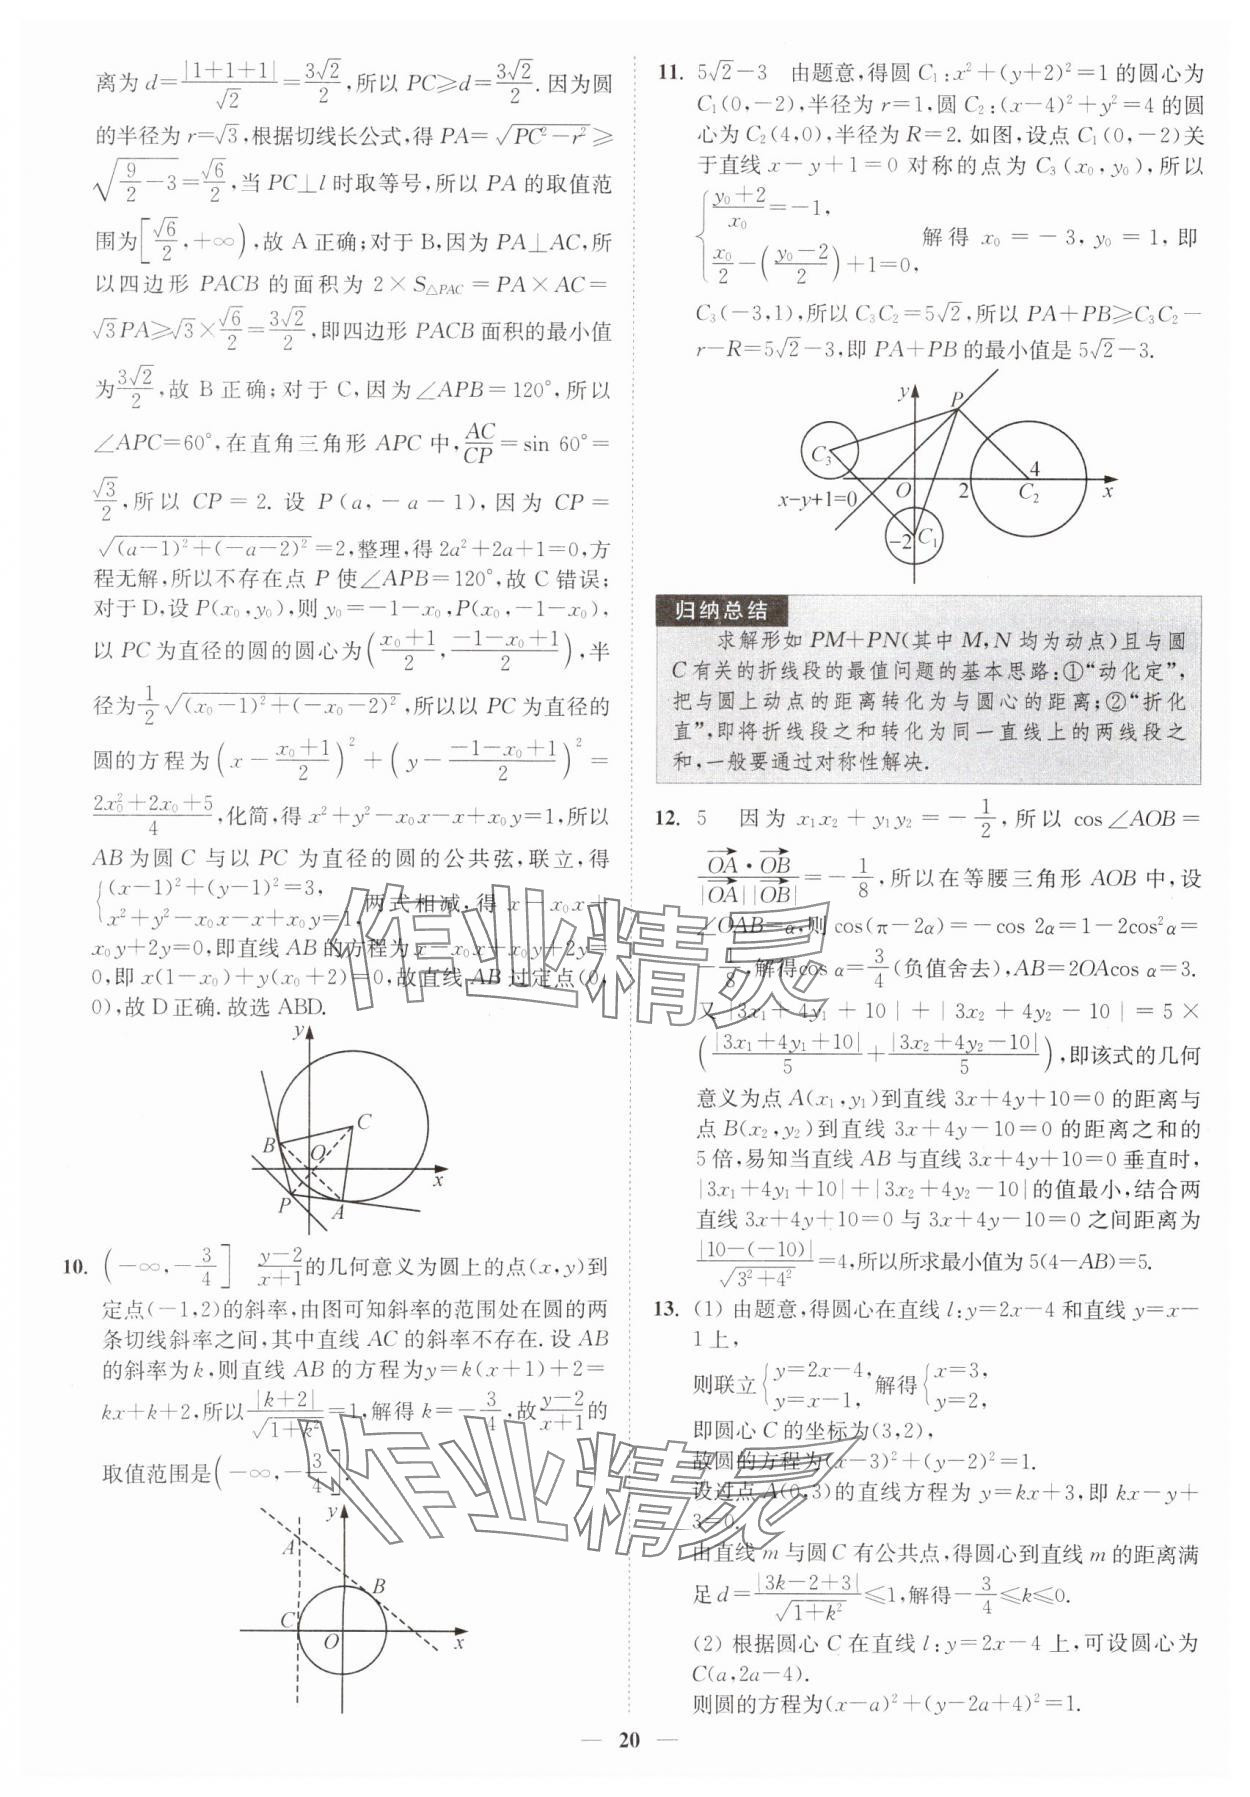 离为 d=|1+1+1|/√2=3√2/2,所以 PC≥d=3√2/2.因为圆
的半径为 r=√3,根据切线长公式,得 PA=√(PC²−r²)≥
√(9/2−3)=√6/2,当 PC⊥l 时取等号,所以 PA 的取值范
围为[√6/2,+∞),故 A 正确;对于 B,因为 PA⊥AC,所
以四边形 PACB 的面积为 2×S△PAC=PA×AC=
√3PA≥√3×√6/2=3√2/2,即四边形 PACB 面积的最小值
为3√2/2,故 B 正确;对于 C,因为∠APB=120°,所以
∠APC=60°,在直角三角形 APC 中,AC/CP=sin 60°=
√3/2,所以 CP=2.设 P(a,−a−1),因为 CP=
√((a−1)²+(−a−2)²)=2,整理,得 2a²+2a+1=0,方
程无解,所以不存在点 P 使∠APB=120°,故 C 错误;
对于 D,设 P(x₀,y₀),则 y₀=−1−x₀,P(x₀,−1−x₀),
以 PC 为直径的圆的圆心为((x₀+1)/2,(−1−x₀+1)/2),半
径为1/2√((x₀−1)²+(−x₀−2)²),所以以 PC 为直径的
圆的方程为(x−(x₀+1)/2)²+(y−(−1−x₀+1)/2)²=
(2x₀²+2x₀+5)/4,化简,得 x²+y²−x₀x−x+x₀y=1,所以
AB 为圆 C 与以 PC 为直径的圆的公共弦,联立,得
{(x−1)²+(y−1)²=3,
x²+y²−x₀x−x+x₀y=1, 两式相减,得 x−x₀x+
x₀y+2y=0,即直线 AB 的方程为 x−x₀x+x₀y+2y=
0,即 x(1−x₀)+y(x₀+2)=0,故直线 AB 过定点(0,
0),故 D 正确.故选 ABD.
y
C
B
O
x
P
A
10. (−∞,−3/4] (y−2)/(x+1)的几何意义为圆上的点(x,y)到
定点(−1,2)的斜率,由图可知斜率的范围处在圆的两
条切线斜率之间,其中直线 AC 的斜率不存在.设 AB
的斜率为 k,则直线 AB 的方程为 y=k(x+1)+2=
kx+k+2,所以|k+2|/√(1+k²)=1,解得 k=−3/4,故(y−2)/(x+1)的
取值范围是(−∞,−3/4].
y
A
B
C
O
x
11. 5√2−3 由题意,得圆 C₁:x²+(y+2)²=1 的圆心为
C₁(0,−2),半径为 r=1,圆 C₂:(x−4)²+y²=4 的圆
心为 C₂(4,0),半径为 R=2.如图,设点 C₁(0,−2)关
于直线 x−y+1=0 对称的点为 C₃(x₀,y₀),所以
{(y₀+2)/x₀=−1,
x₀/2−((y₀−2)/2)+1=0, 解得 x₀=−3,y₀=1,即
C₃(−3,1),所以 C₃C₂=5√2,所以 PA+PB≥C₃C₂−
r−R=5√2−3,即 PA+PB 的最小值是 5√2−3.
y
P
C₃
4
O
2
C₂
x
x−y+1=0
−2
C₁
归纳总结
求解形如 PM+PN(其中 M,N 均为动点)且与圆
C 有关的折线段的最值问题的基本思路:①“动化定”,
把与圆上动点的距离转化为与圆心的距离;②“折化
直”,即将折线段之和转化为同一直线上的两线段之
和,一般要通过对称性解决.
12. 5 因为 x₁x₂+y₁y₂=−1/2,所以 cos∠AOB=
OA→·OB→/|OA→||OB→|=−1/8,所以在等腰三角形 AOB 中,设
∠OAB=α,则 cos(π−2α)=−cos 2α=1−2cos²α=
−1/8,解得cos α=3/4(负值舍去),AB=2OAcos α=3.
又|3x₁+4y₁+10|+|3x₂+4y₂−10|=5×
(|3x₁+4y₁+10|/5+|3x₂+4y₂−10|/5),即该式的几何
意义为点 A(x₁,y₁)到直线 3x+4y+10=0 的距离与
点 B(x₂,y₂)到直线 3x+4y−10=0 的距离之和的
5 倍,易知当直线 AB 与直线 3x+4y+10=0 垂直时,
|3x₁+4y₁+10|+|3x₂+4y₂−10|的值最小,结合两
直线 3x+4y+10=0 与 3x+4y−10=0 之间距离为
|10−(−10)|/√(3²+4²)=4,所以所求最小值为 5(4−AB)=5.
13. (1) 由题意,得圆心在直线 l:y=2x−4 和直线 y=x−
1 上,
则联立{y=2x−4, y=x−1, 解得{x=3, y=2,
即圆心 C 的坐标为(3,2),
故圆的方程为(x−3)²+(y−2)²=1.
设过点 A(0,3)的直线方程为 y=kx+3,即 kx−y+
3=0.
由直线 m 与圆 C 有公共点,得圆心到直线 m 的距离满
足 d=|3k−2+3|/√(1+k²)≤1,解得−3/4≤k≤0.
(2) 根据圆心 C 在直线 l:y=2x−4 上,可设圆心为
C(a,2a−4).
则圆的方程为(x−a)²+(y−2a+4)²=1.
— 20 —
作业精灵
作业精灵